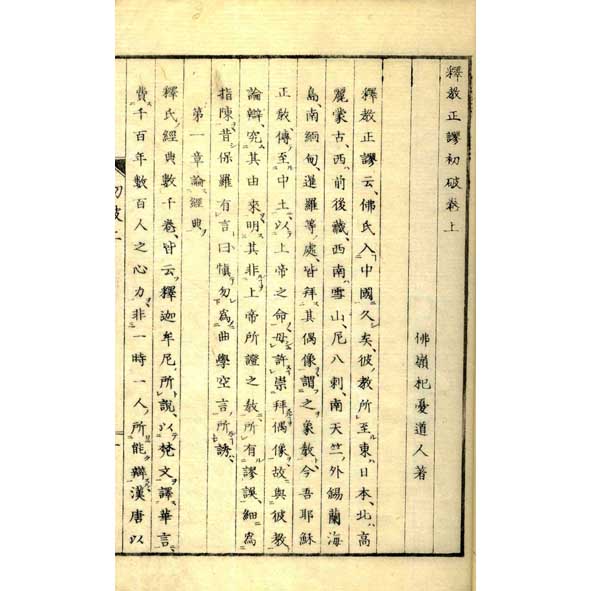 釋教正謬初破卷上
佛嶺杞憂道人著
釋教正謬云、佛氏入中國久矣、彼教所至、東日本、北高
麗蒙古、西前後藏、西南雪山、厄八剌、南天竺、外錫蘭海
島、南緬甸、暹羅等處、皆拜其偶像、謂之象教、今吾耶穌
正教傳至中土、以上帝之命、毋許崇拜偶像、故與彼教
論辯、究其由來、明其非上帝所證之教、所有謬誤、細為
指陳、昔保羅有言、曰慎勿為曲學空言所誘、
第一章論經典
釋氏經典數千卷、皆云釋迦牟尼所說、以梵文譯華言、
費千百年數百人之心力、非一時一人所能辯、漢唐以